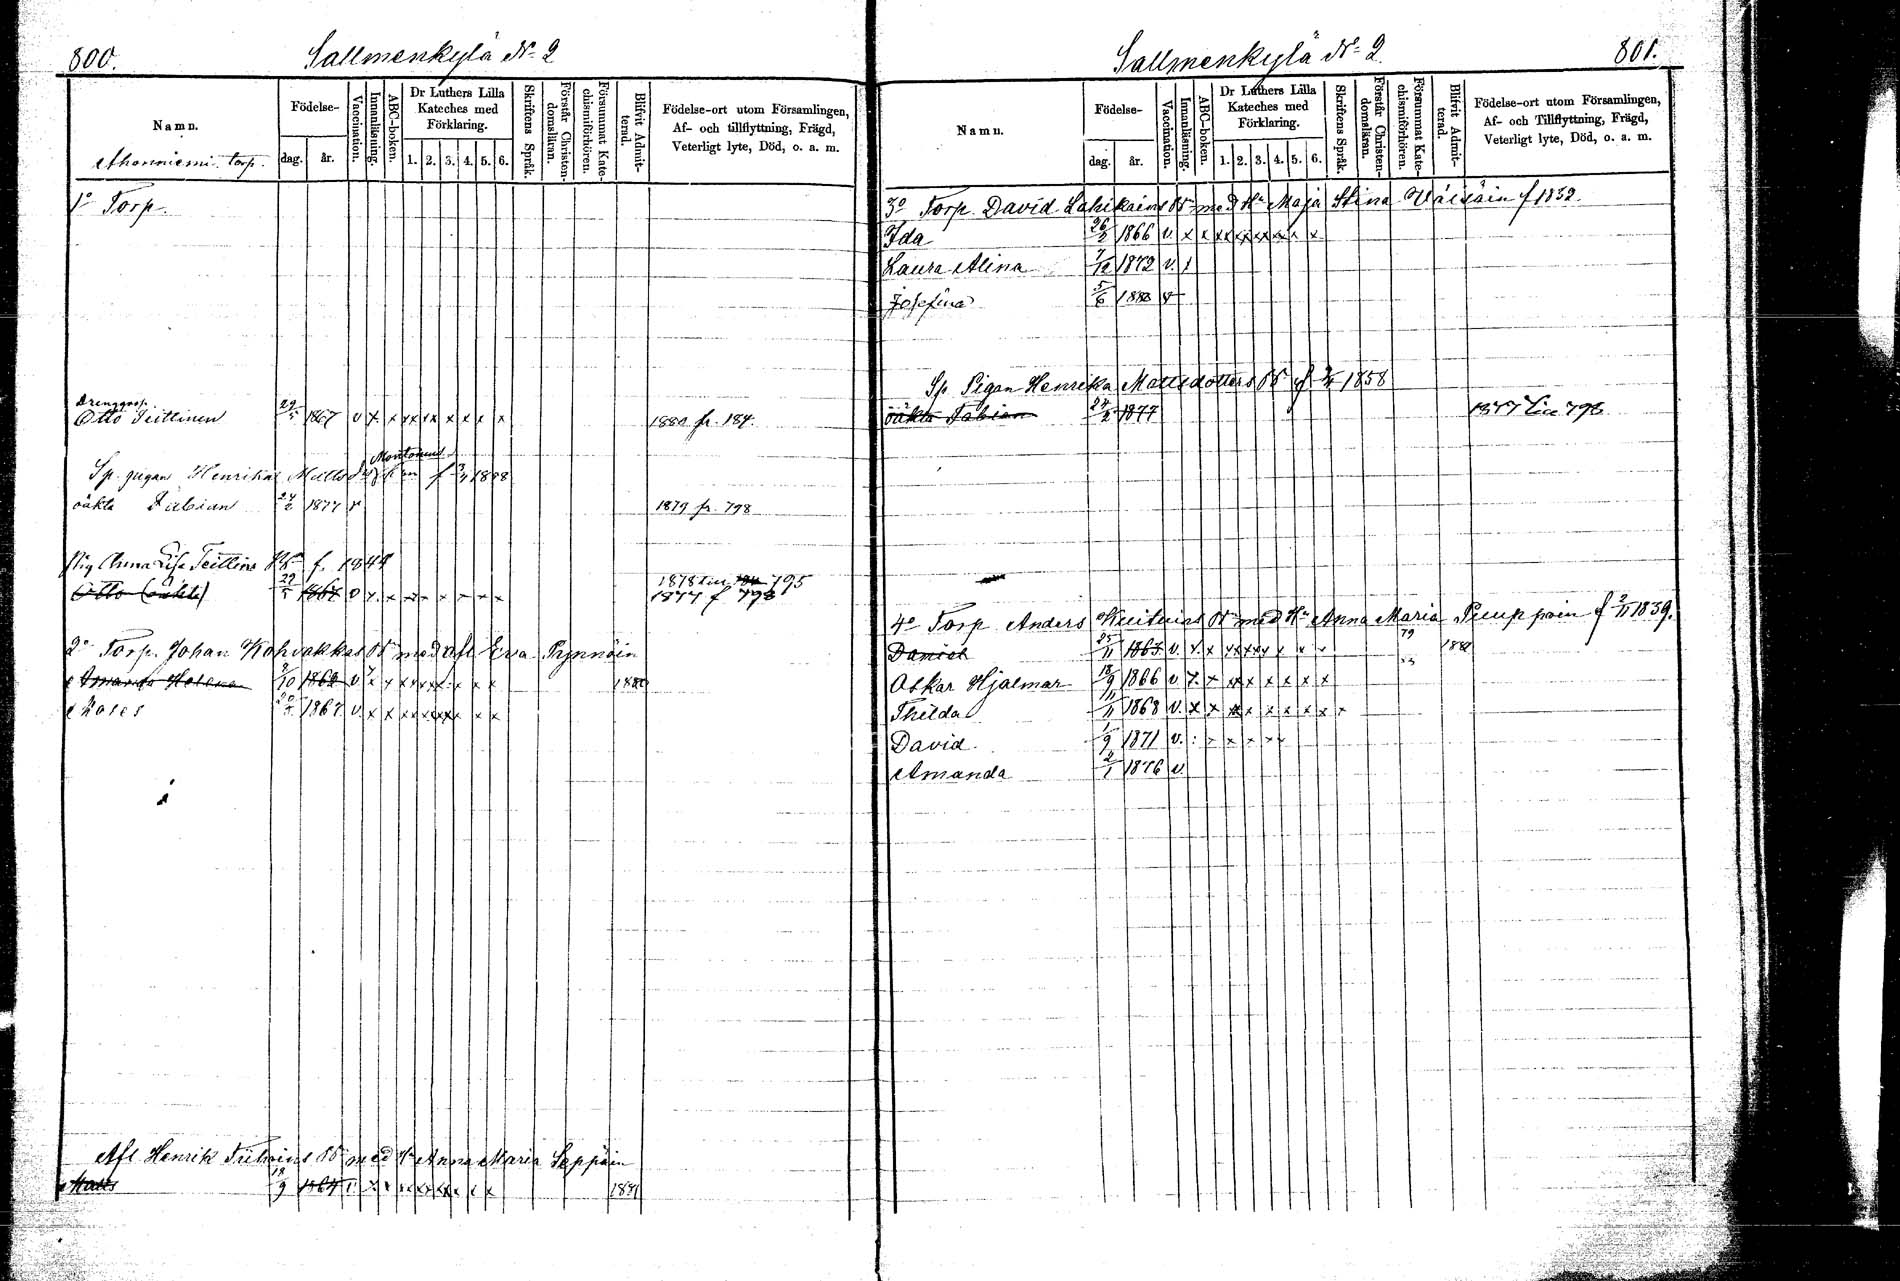 800.
Sallmenkylä No 2
Namn.
Födelse-
dag.
år.
Vaccination.
Innanläsning.
ABC-boken.
Dr Luthers Lilla
Kateches med
Förklaring.
1. 2. 3. 4. 5. 6.
Skriftens Språk.
Förstår Christen-
domsläran.
Försummat Kate-
chismiförhören.
Blifvit Admit-
terad.
Födelse-ort utom Församlingen,
Af- och tillflyttning, Frägd,
Veterligt lyte, Död, o. a. m.
Ahonniemi torp.
1o Torp.
Drenggoss.
Otto Teittinen 29/5 1867 v x x xx xx x x x x 1880 fr. 184.
Montonens
Sp. pigan Henrika Mattsd. f 3/4 1858
oäkta Fabian 24/2 1877 v 1879 fr. 798
Pig Anna Lisa Teittins Bn f. 1844
1878 till 184 795
Otto (oäkta) 29/5 1867 v x x x x x x x x 1877 f 798
2o Torp. Johan Kohvakkas Bn med afl Eva Pynnöin
Amanda Helena 9/10 1862 v x x x x x x x x x 1880
Moses 1867 v x x x x x x x x
Afl Henrik Bn med Hu Anna Maria Seppäin
Matts 18/9 1864 v x x x x x x x x 1881
Sallmenkylä No 2.
801.
Namn.
Födelse-
dag.
år.
Vaccination.
Innanläsning.
ABC-boken.
Dr Luthers Lilla
Kateches med
Förklaring.
1. 2. 3. 4. 5. 6.
Skriftens Språk.
Förstår Christen-
domsläran.
Försummat Kate-
chismiförhören.
Blifvit Admit-
terad.
Födelse-ort utom Församlingen,
Af- och Tillflyttning, Frägd,
Veterligt lyte, Död, o. a. m.
3o Torp. David Lahikains Bn med Hu Maja Stina Wäisäin f 1832.
Ida 26/2 1866 v. x x xx xx xx xx x x
Laura Alina 7/12 1872 v. x
Josefina 5/6 1880 v
Sp Pigan Henrika Mattsdotters Bn f 3/4 1858
oäkta Fabian 24/2 1877 1877 till 798
4o Torp Anders Kuituins Bn med Hu Anna Maria Pumppoin f 2/11 1839.
Daniel 25/11 1863 v. x x xx xx x x x x 79 1881
Oskar Hjalmar 18/9 1866 v x x xx x x x x x
Thilda 11/11 1868 v. x x xx x x x x x x
David 1/9 1871 v. : x x x x x
Amanda 2/1 1876 v.